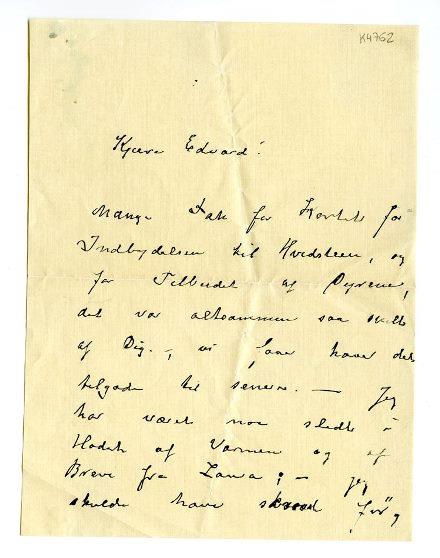 K4762
Kjære Edvard!
Mange Tak for Kortet for
Indbydelsen til Hvidsteen, og
for Tilbudet af Dyrene,
det var altsammen saa snilt
af Dig. – vi faar have det
tilgode til senere. – Jeg
har været noe sledt i
Hodet af Varmen og af
Breve fra Laura; – jeg
skulde have skreet før